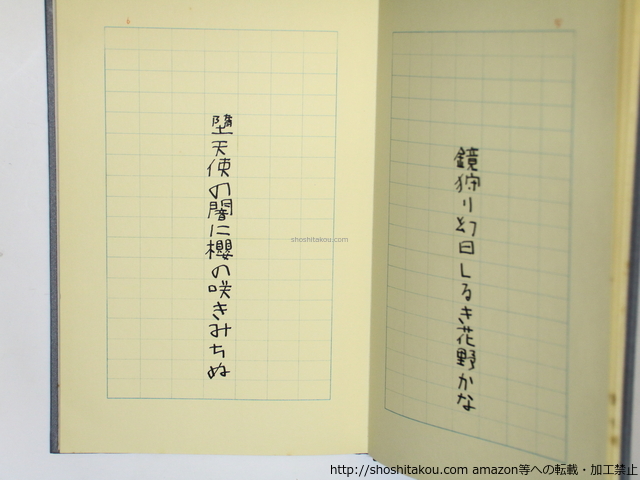 鏡狩り幻日しるき花野かな
堕天使の闇に櫻の咲きみちぬ
shoshitakou.com
http://shoshitakou.com amazon等への転載・加工禁止